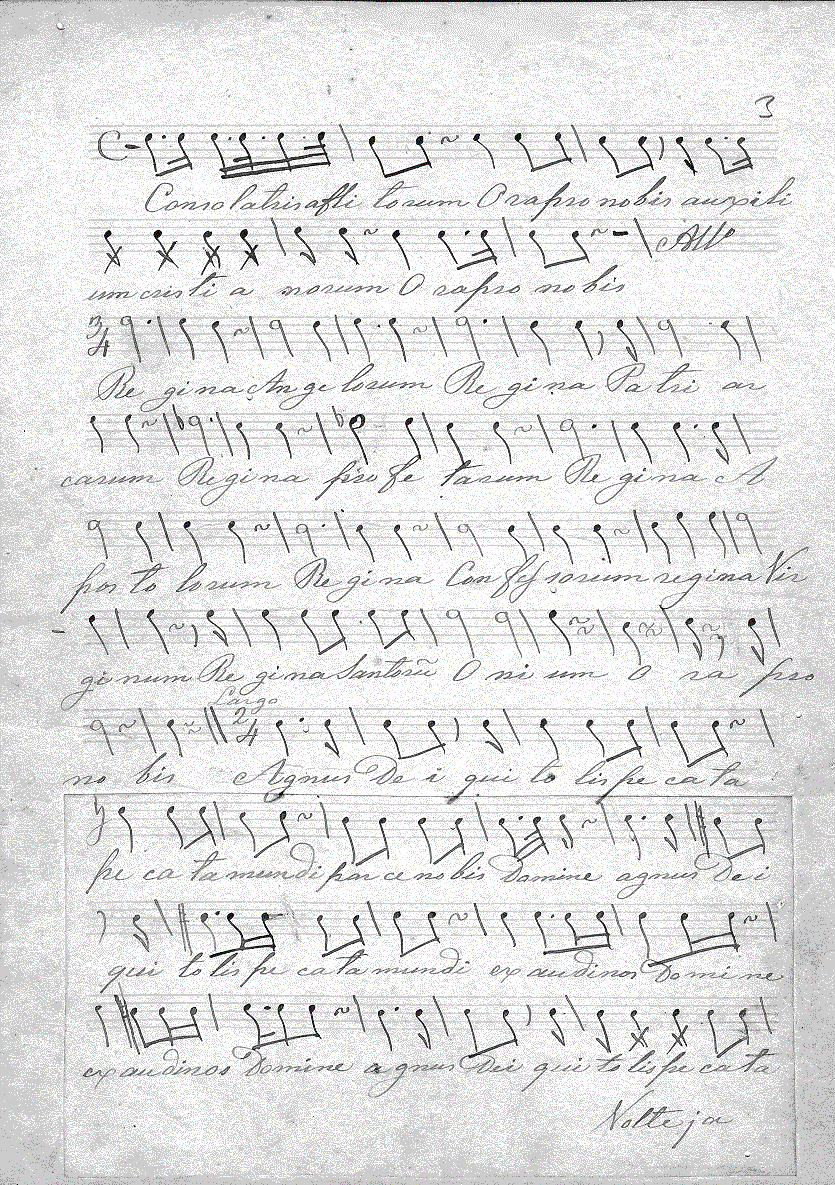 3
Consolatrisafli torum Orapronobis auxili
Allo
umcristi a norum O rapro nobis
3/4
Re gina An ge lorum Re gina Patri ar
carum Regina profe tarum Regina A
posto lorum Regina Confessorum regina Vir
ginum Re gina Santorũ O ni um O ra pro
Largo
2/4
no bis Agnus De i qui to lis pe ca ta
pe ca ta mundi parce nobis Domine agnus Dei
qui tolis pe ca ta mundi exaudinos Domine
exaudinos Domine agnus Dei qui tolis pe ca ta
Volte ja